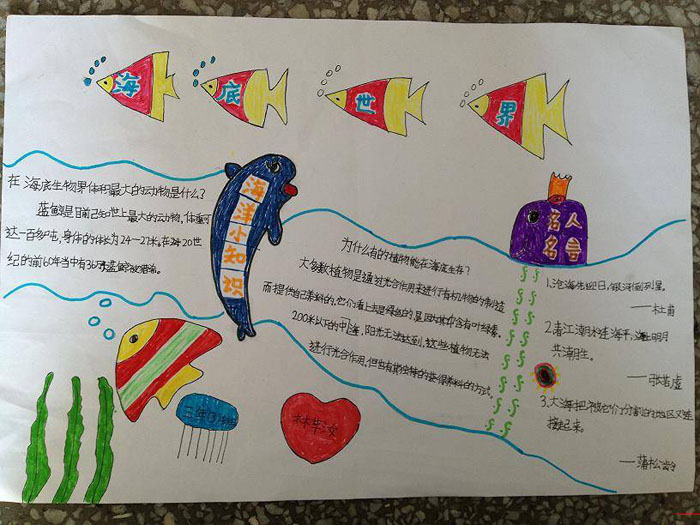 海底世界
在海底生物界体积最大的动物是什么?
蓝鲸是目前已知世上最大的动物,体重可
达一百多吨,身体的体长为24-27米。在20世
纪的前60年当中有36万头蓝鲸被捕
海洋小知识
为什么有的植物能在海底生存?
大多数植物是通过光合作用来进行有机物的制造
而提供自己养料的。它们看上去是绿色的,是因为其中含有叶绿素。
200米以下的中海,阳光无法达到,这些植物无法
进行光合作用,但也有其独特的获得养料的方式。
名人
名言
1.沧海先迎日,银河倒列星。
——杜甫
2.春江潮水连海平,海上明月
共潮生。
——张若虚
3.大海把被它们分割的地区又连
接起来。
——蒲松龄
三年
林华